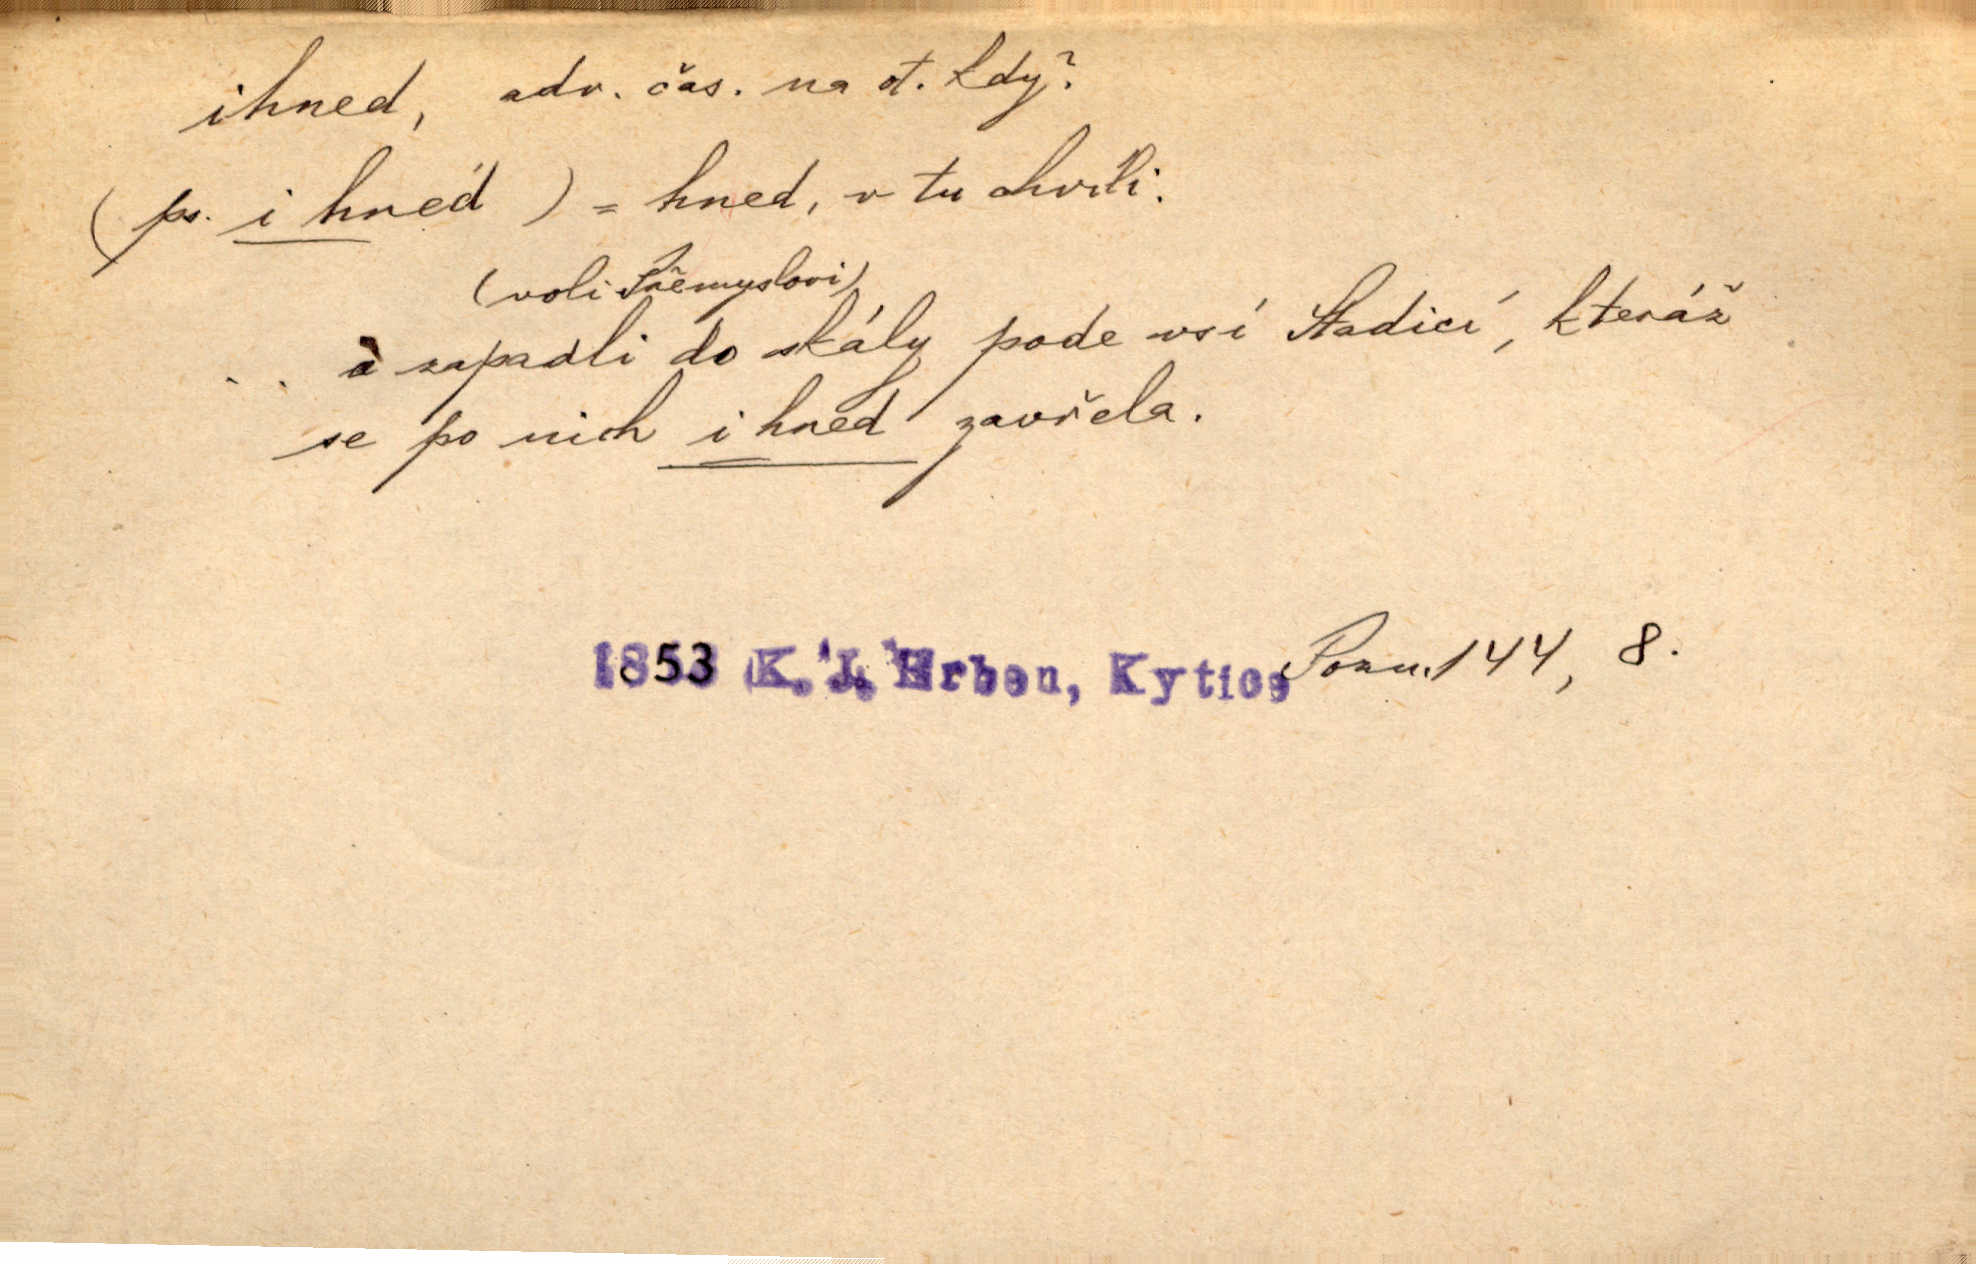 ihned, adv. čas. na ot. kdy?
(ps. i hned) = hned, v tu chvíli.
(voli Přemyslovi)
. . a zapadli do skály pode vsí Stadicí, kteráž
se po nich i hned zavřela.
1853 K. J. Erben, Kytice Pozn. 144, 8.